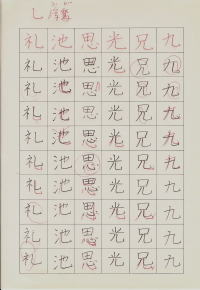 礼池思光兄九
礼池思光兄九
礼池思光兄九
礼池思光兄九
礼池思光兄九
礼池思光兄九
礼池思光兄九
礼池思光兄九
礼池思光兄九
礼池思光兄九